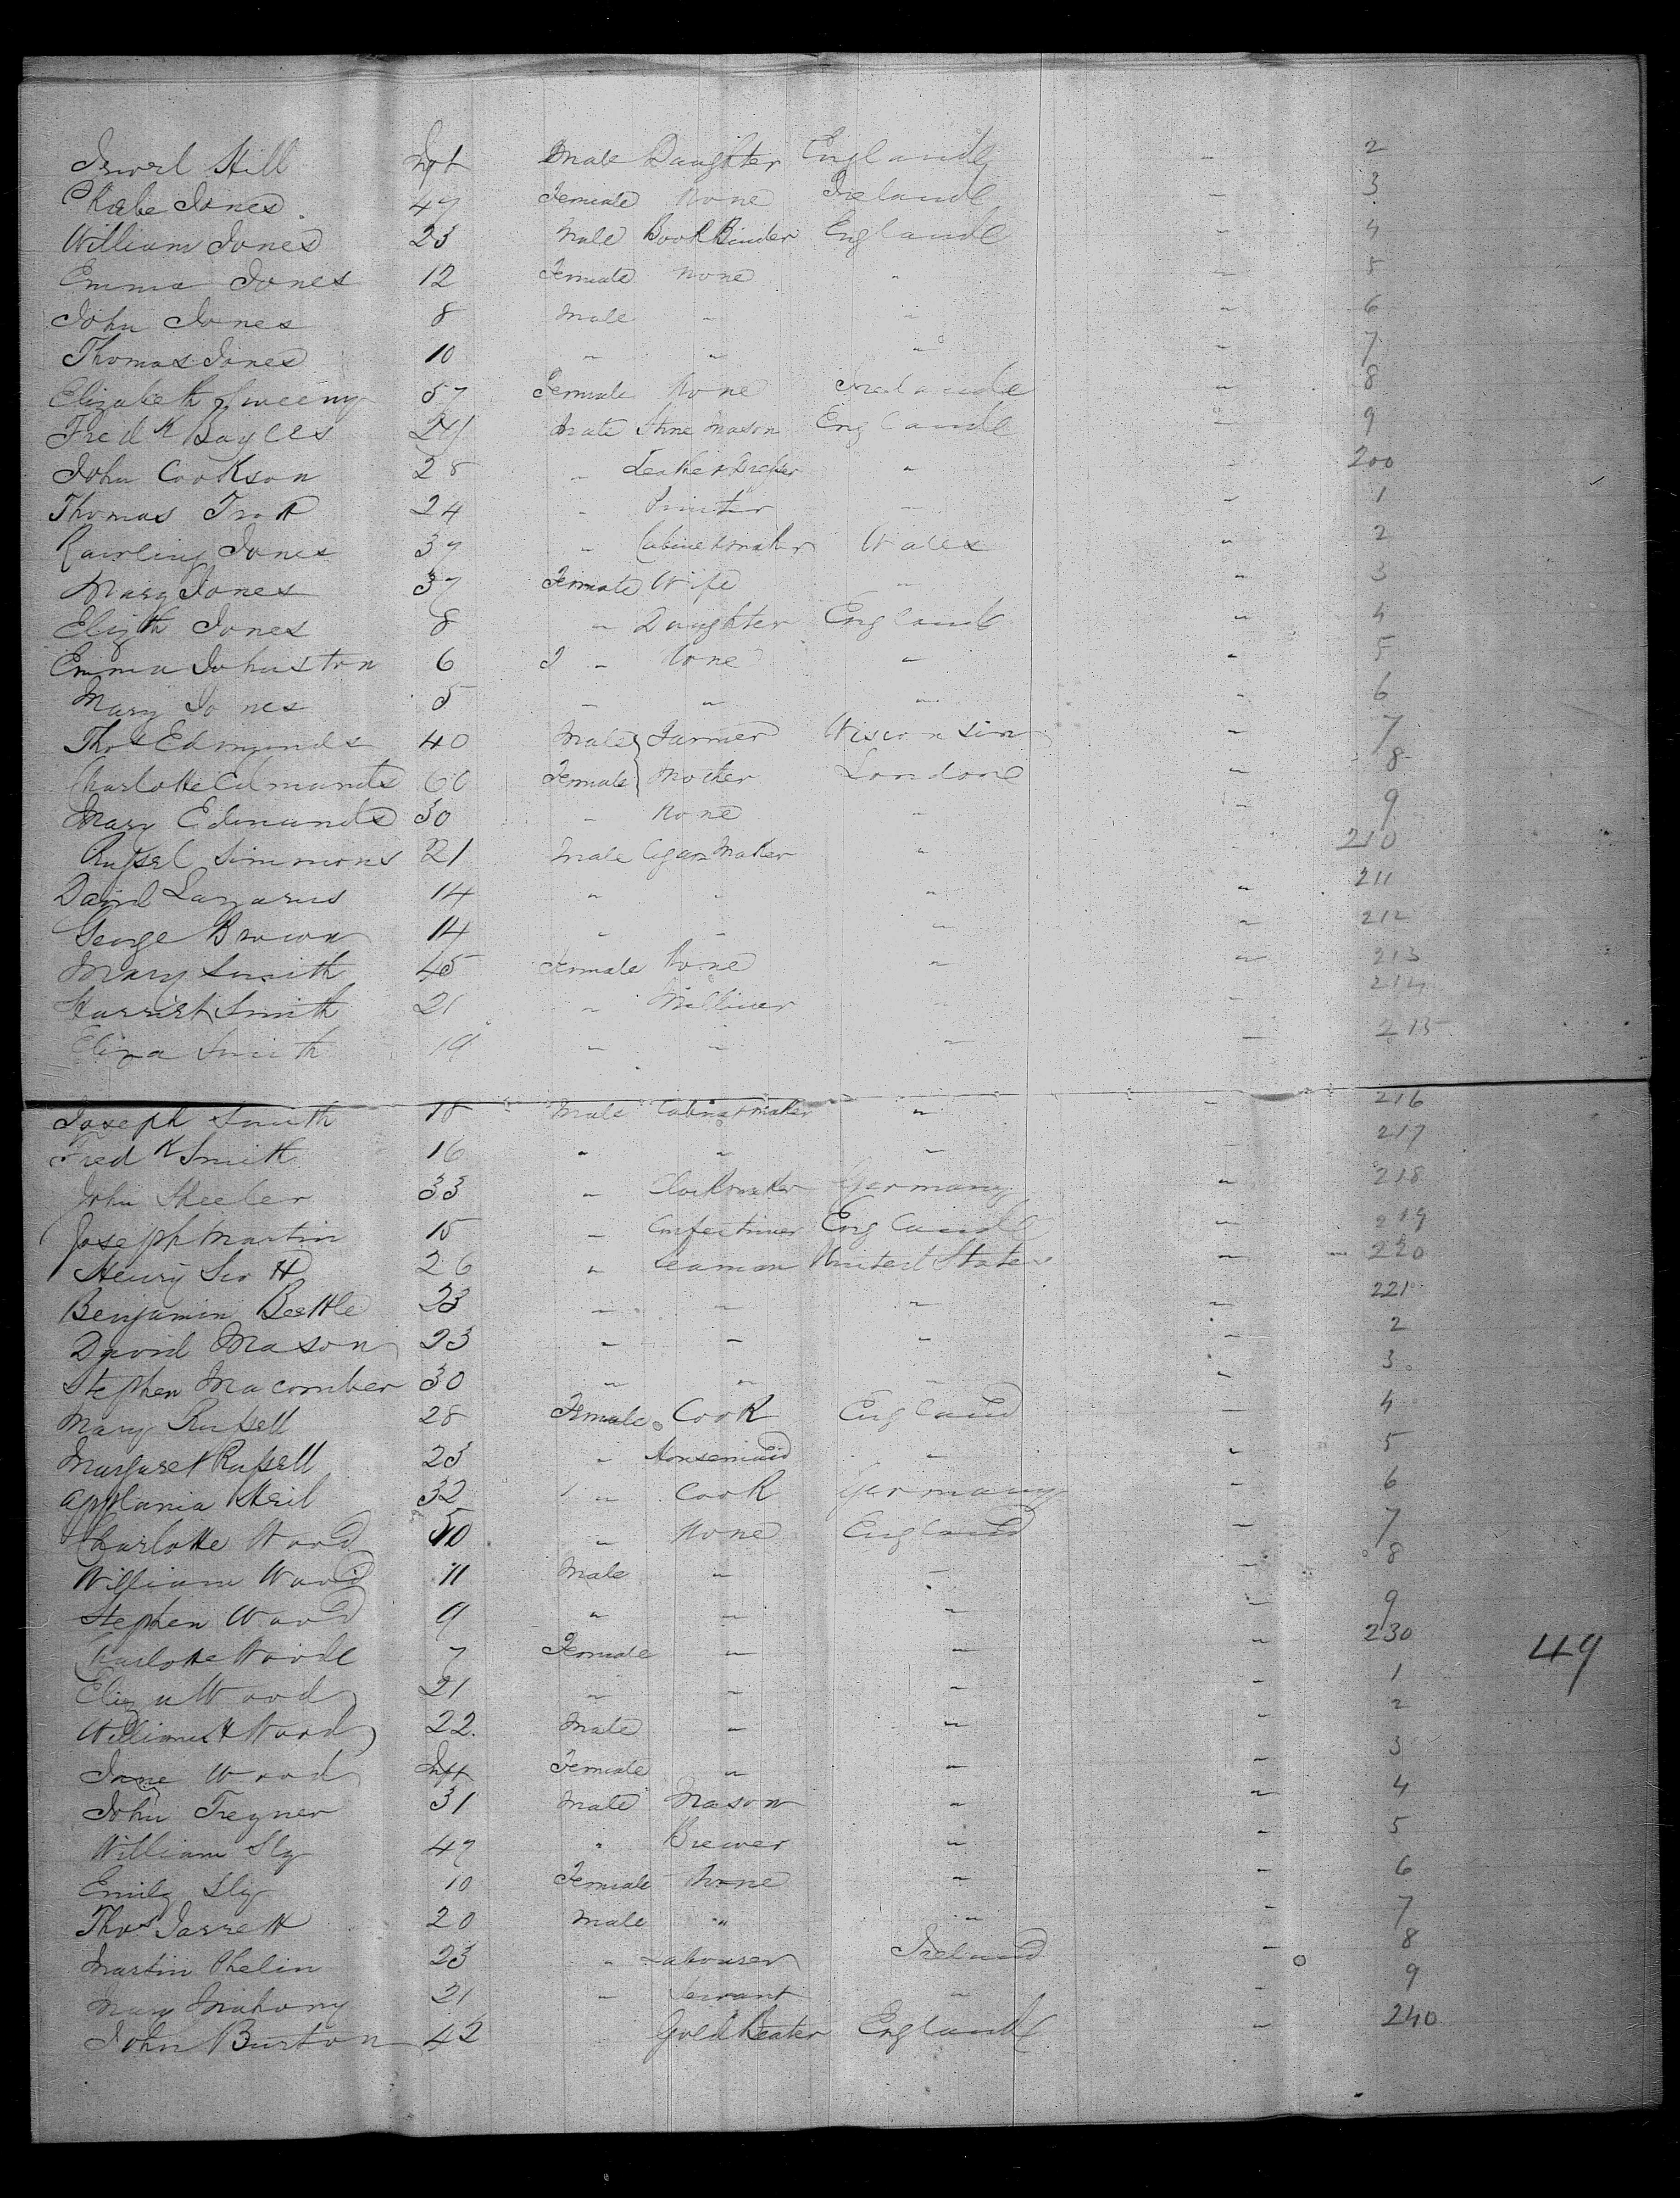 Hill Inft Male Daughter England " 2
Jones 47 Female None Ireland " 3
William Jones 23 Male Book Binder England " 4
Emma Jones 12 Female None " " 5
John Jones 8 Male " " " 6
Thomas Jones 10 " " " " 7
Elizabeth Sweeny 57 Female None Ireland " 8
Fredk Bayles 24 Male Stone Mason England " 9
John Cookson 28 " Leather Dresser " " 200
Thomas 24 " Printer " " 1
Jones 37 " Cabinetmaker Wales " 2
Mary Jones 37 Female Wife " " 3
Elizth Jones 8 " Daughter England " 4
Emma Johnston 6 " None " " 5
Mary Jones 5 " " " " 6
Thos Edmonds 40 Male Farmer Wisconsin " 7
Charlotte Edmunds 60 Female Mother London " 8
Mary Edmunds 30 " None " " 9
Russel Simmons 21 Male Cigar Maker " " 210
David Lazarus 14 " " " " 211
George Brown 14 " " " " 212
Mary Smith 45 Female None " " 213
Harriet Smith 21 " Milliner " " 214
Eliza Smith 19 " " " " 215
Joseph Smith 18 Male Cabinetmaker " " 216
Fredk Smith 16 " " " " 217
John Sheeler 33 " Clockmaker Germany " 218
Joseph Martin 15 " Confectioner England " 219
Henry 26 " Seaman United States " 220
Benjamin Beettle 23 " " " " 221
David Mason 23 " " " " 2
Stephen Macomber 30 " " " " 3
Mary Russell 28 Female Cook England " 4
Margaret Russell 23 " Housemaid " " 5
Applania 32 " Cook Germany " 6
Charlotte Wood 50 " None England " 7
William Wood 11 Male " " " 8
Stephen Wood 9 " " " " 9
Charlotte Wood 7 Female " " " 230
49
Eliza Wood 21 " " " " 1
William H Wood 22 Male " " " 2
Jane Wood Inft Female " " " 3
John Tregner 31 Male Mason " " 4
William Sly 47 " Brewer " " 5
Emily Sly 10 Female None " " 6
Thos Jarrett 20 Male " " " 7
Martin Phelin 23 " Labourer Ireland " 8
Mary Mahony 21 " Servant " " 9
John Burton 42 Gold Beater England " 240